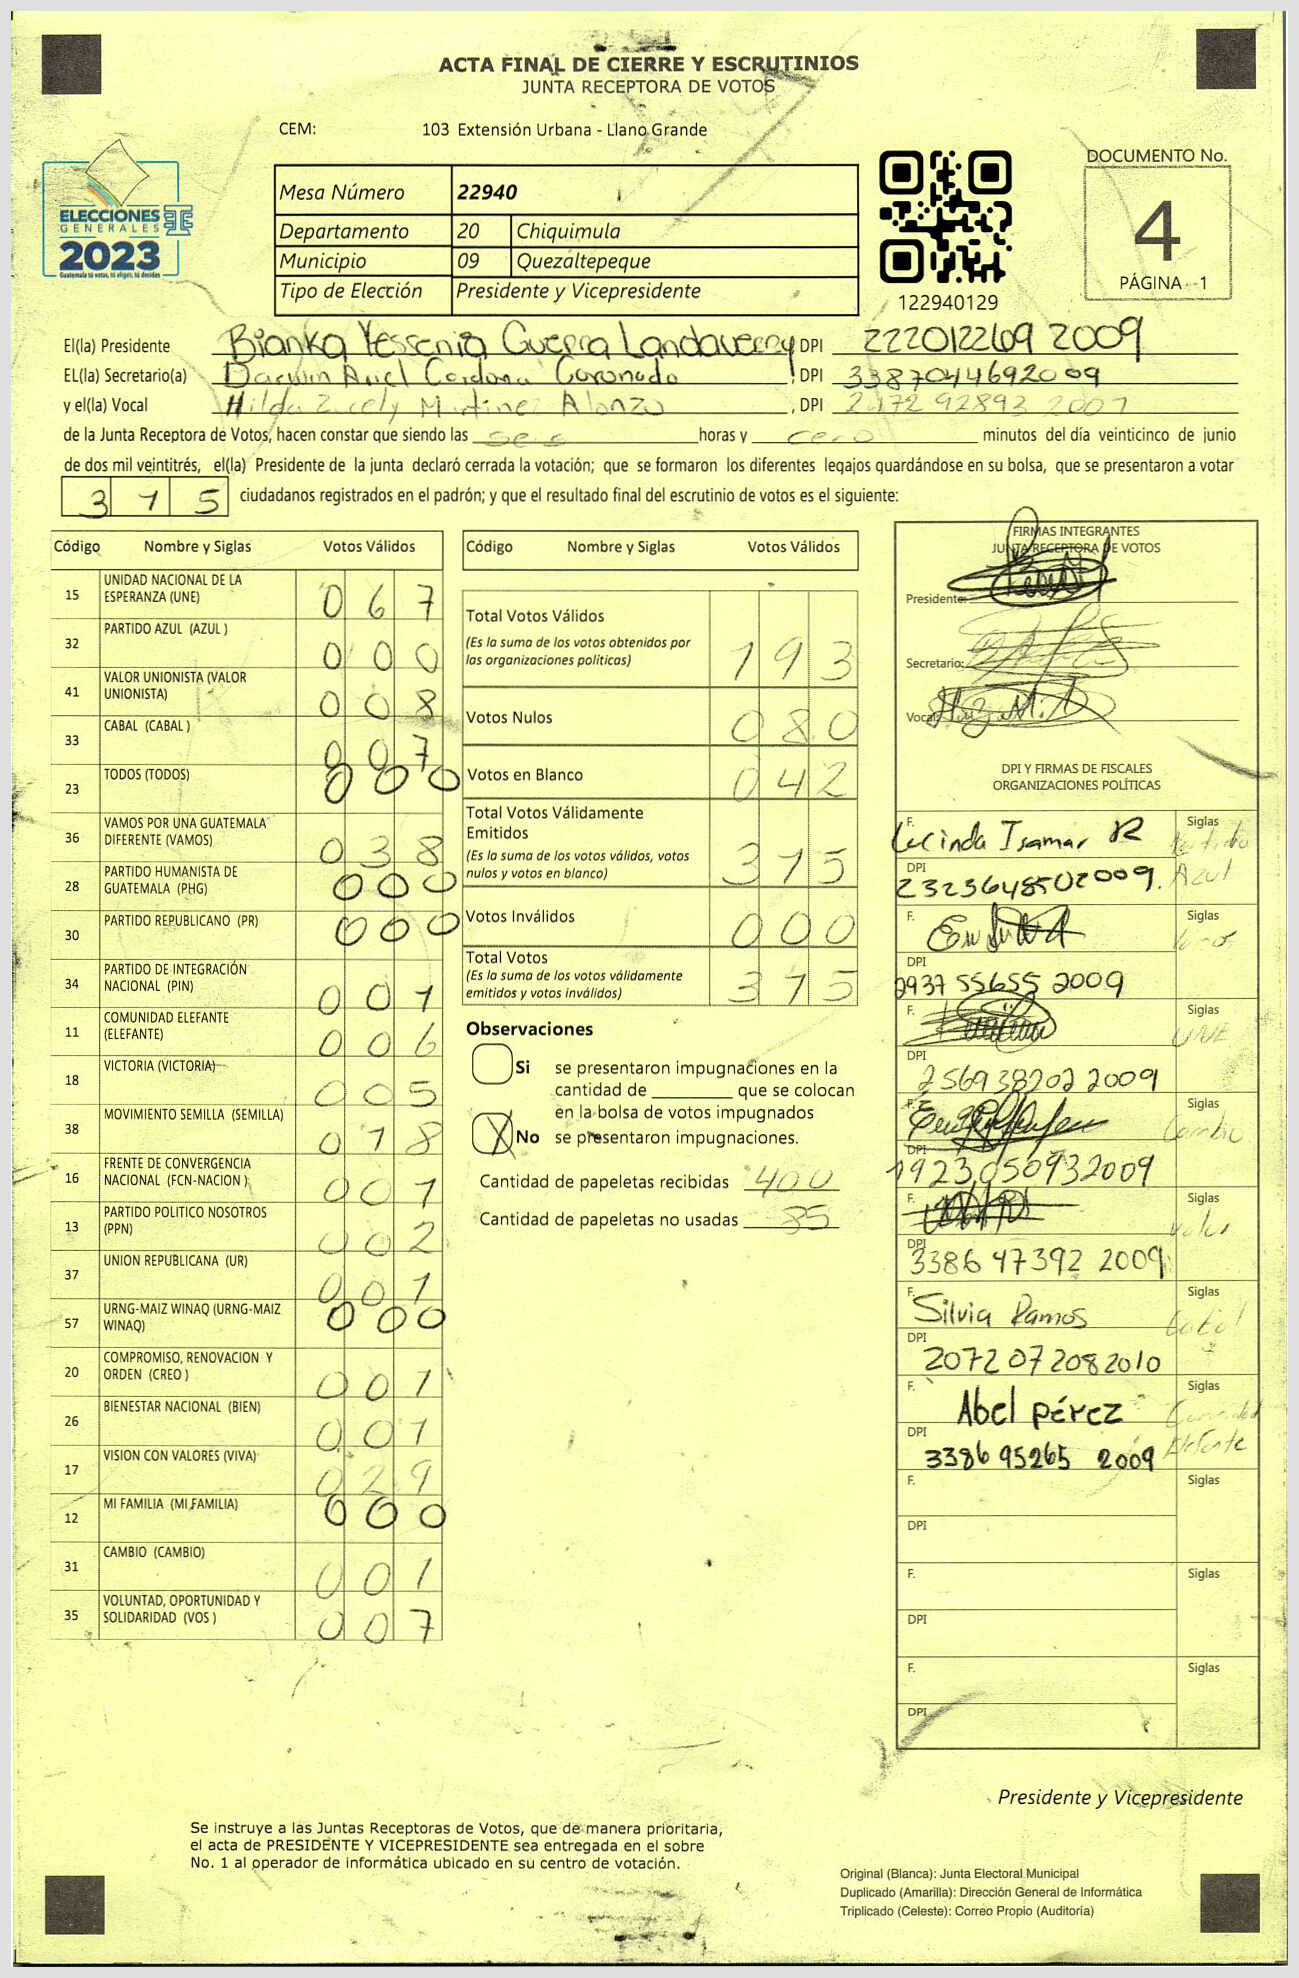 ACTA FINAL DE CIERRE Y ESCRUTINIOS
JUNTA RECEPTORA DE VOTOS
CEM: 103 Extensión Urbana - Llano Grande
ELECCIONES
GENERALES
2023
Guatemala tú votas, tú eliges, tú decides
Mesa Número 22940
Departamento 20 Chiquimula
Municipio 09 Quezaltepeque
Tipo de Elección Presidente y Vicepresidente
122940129
DOCUMENTO No.
4
PÁGINA 1
El(la) Presidente Bianka Yessenia Guerra Landaverry DPI 222012269 2009
EL(la) Secretario(a) Darwin Ariel Cardona Coronado , DPI 3387044692009
y el(la) Vocal Hilda Zucely Martinez Alonzo , DPI 2472 92893 2007
de la Junta Receptora de Votos, hacen constar que siendo las seis horas y cero minutos del día veinticinco de junio
de dos mil veintitrés, el(la) Presidente de la junta declaró cerrada la votación; que se formaron los diferentes legajos quardándose en su bolsa, que se presentaron a votar
315 ciudadanos registrados en el padrón; y que el resultado final del escrutinio de votos es el siguiente:
Código Nombre y Siglas Votos Válidos
15 UNIDAD NACIONAL DE LA ESPERANZA (UNE) 067
32 PARTIDO AZUL (AZUL ) 000
41 VALOR UNIONISTA (VALOR UNIONISTA) 008
33 CABAL (CABAL ) 007
23 TODOS (TODOS) 000
36 VAMOS POR UNA GUATEMALA DIFERENTE (VAMOS) 038
28 PARTIDO HUMANISTA DE GUATEMALA (PHG) 000
30 PARTIDO REPUBLICANO (PR) 000
34 PARTIDO DE INTEGRACIÓN NACIONAL (PIN) 001
11 COMUNIDAD ELEFANTE (ELEFANTE) 006
18 VICTORIA (VICTORIA) 005
38 MOVIMIENTO SEMILLA (SEMILLA) 018
16 FRENTE DE CONVERGENCIA NACIONAL (FCN-NACION ) 001
13 PARTIDO POLITICO NOSOTROS (PPN) 002
37 UNION REPUBLICANA (UR) 001
57 URNG-MAIZ WINAQ (URNG-MAIZ WINAQ) 000
20 COMPROMISO, RENOVACION Y ORDEN (CREO ) 001
26 BIENESTAR NACIONAL (BIEN) 001
17 VISION CON VALORES (VIVA) 029
12 MI FAMILIA (MI FAMILIA) 000
31 CAMBIO (CAMBIO) 001
35 VOLUNTAD, OPORTUNIDAD Y SOLIDARIDAD (VOS ) 007
Código Nombre y Siglas Votos Válidos
Total Votos Válidos 193
(Es la suma de los votos obtenidos por
las organizaciones politicas)
Votos Nulos 080
Votos en Blanco 042
Total Votos Válidamente
Emitidos 315
(Es la suma de los votos válidos, votos
nulos y votos en blanco)
Votos Inválidos 000
Total Votos 315
(Es la suma de los votos válidamente
emitidos y votos inválidos)
Observaciones
Si se presentaron impugnaciones en la
cantidad de ________ que se colocan
en la bolsa de votos impugnados
X No se presentaron impugnaciones.
Cantidad de papeletas recibidas 400
Cantidad de papeletas no usadas 85
FIRMAS INTEGRANTES
JUNTA RECEPTORA DE VOTOS
Presidente:
Secretario:
Vocal:
DPI Y FIRMAS DE FISCALES
ORGANIZACIONES POLÍTICAS
F. Lucinda Isamar R Siglas Partido Azul
DPI 2323648502009.
F. Siglas
DPI 2937 55655 2009
F. Siglas UNE
DPI 256938202 2009
F. Siglas Cambio
DPI 1923050932009
F. Siglas Valor
DPI 3386 47392 2009
F. Silvia Ramos Siglas Cabal
DPI 2072 07208 2010
F. Abel pérez Siglas Comunidad Elefante
DPI 3386 95265 2009
F. Siglas
DPI
F. Siglas
DPI
F. Siglas
DPI
Presidente y Vicepresidente
Se instruye a las Juntas Receptoras de Votos, que de manera prioritaria,
el acta de PRESIDENTE Y VICEPRESIDENTE sea entregada en el sobre
No. 1 al operador de informática ubicado en su centro de votación.
Original (Blanca): Junta Electoral Municipal
Duplicado (Amarilla): Dirección General de Informática
Triplicado (Celeste): Correo Propio (Auditoría)